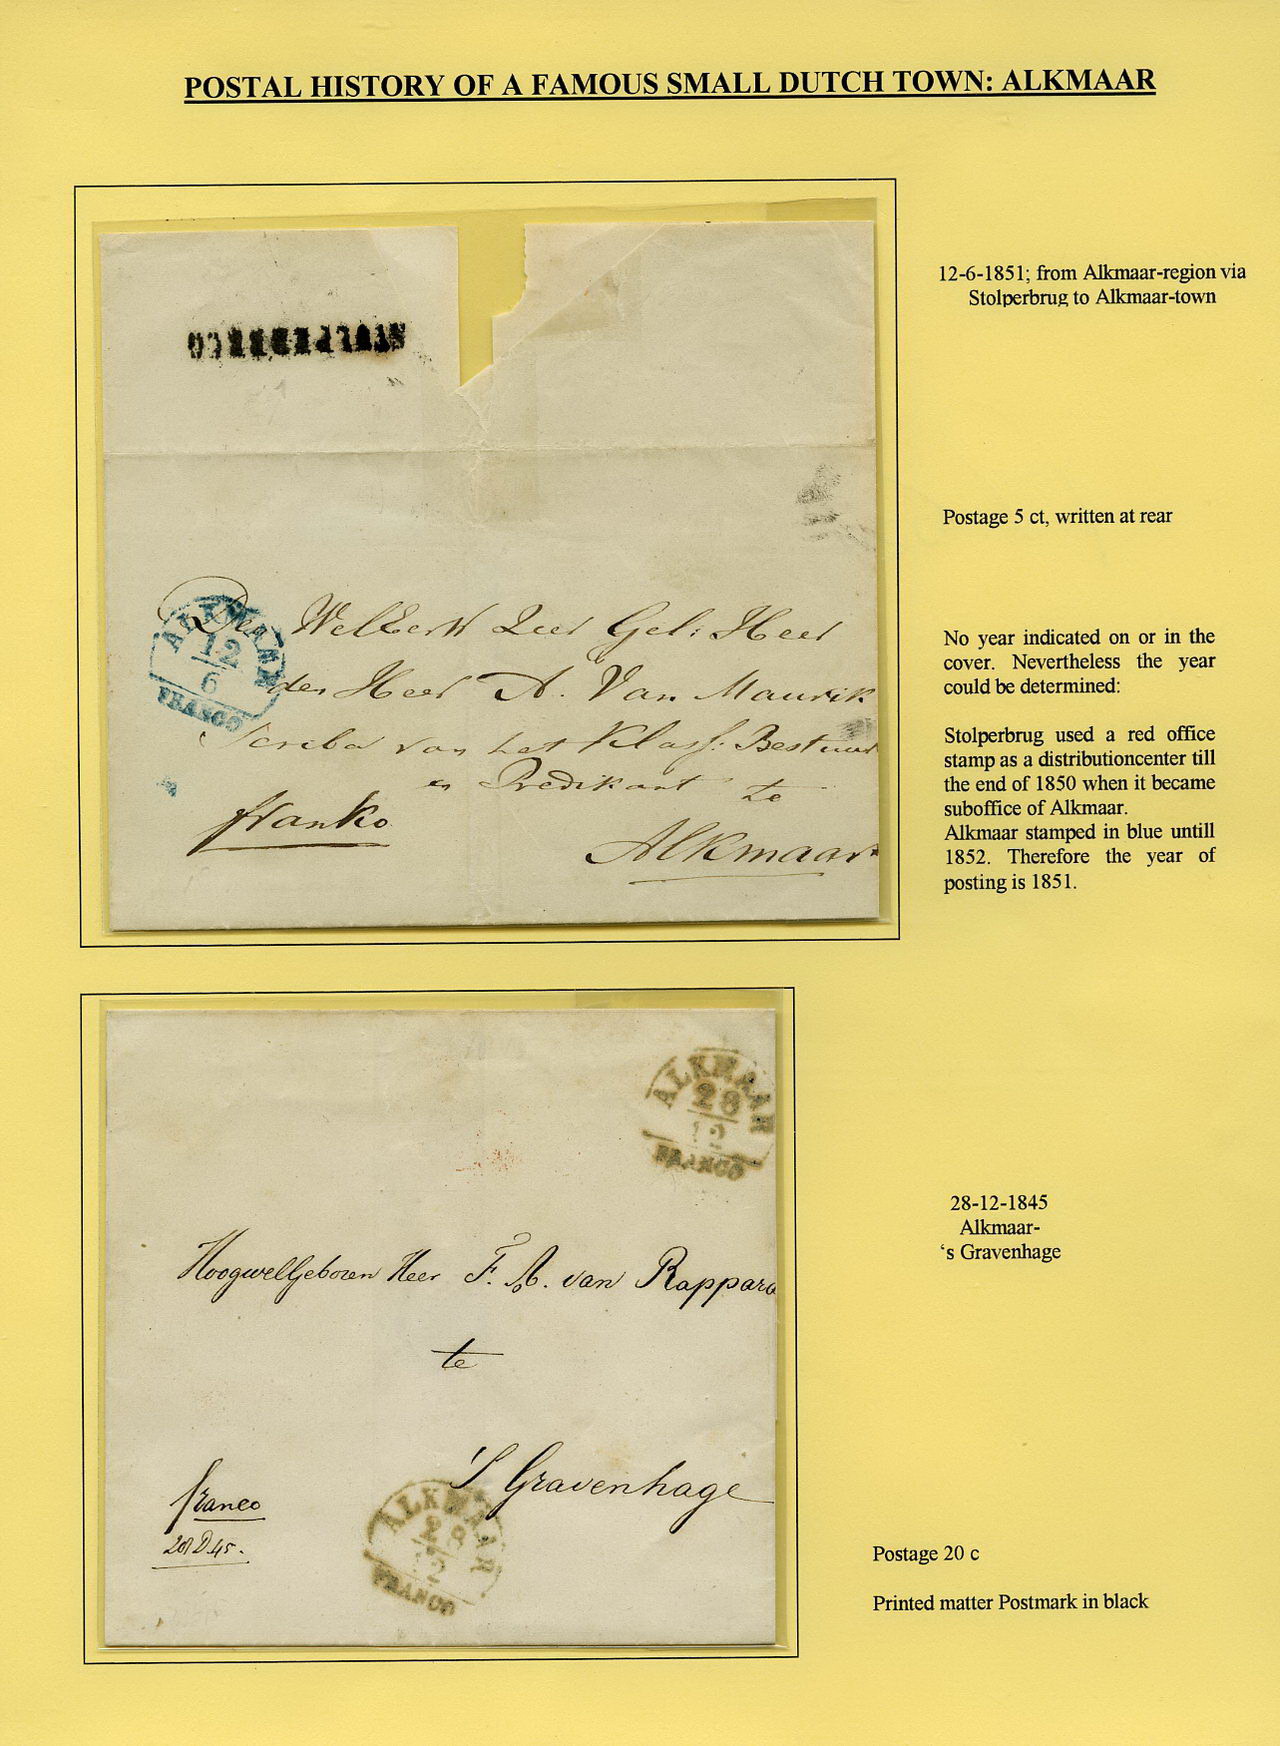 POSTAL HISTORY OF A FAMOUS SMALL DUTCH TOWN: ALKMAAR
12-6-1851; from Alkmaar-region via
Stolperbrug to Alkmaar-town
Postage 5 ct, written at rear
ALKMAAR
12
6
FRANCO
Den WelEerw Zeer Gel: Heer
den Heer A. Van Maurik
Scriba van het Klass: Bestuur
en Predikant te
franko
Alkmaar
No year indicated on or in the
cover. Nevertheless the year
could be determined:
Stolperbrug used a red office
stamp as a distributioncenter till
the end of 1850 when it became
suboffice of Alkmaar.
Alkmaar stamped in blue untill
1852. Therefore the year of
posting is 1851.
ALKMAAR
28
12
FRANCO
HoogwelGeboren Heer F. A. van Rappara
te
'S Gravenhage
franco
28 D 45.
ALKMAAR
28
12
FRANCO
28-12-1845
Alkmaar-
‘s Gravenhage
Postage 20 c
Printed matter Postmark in black